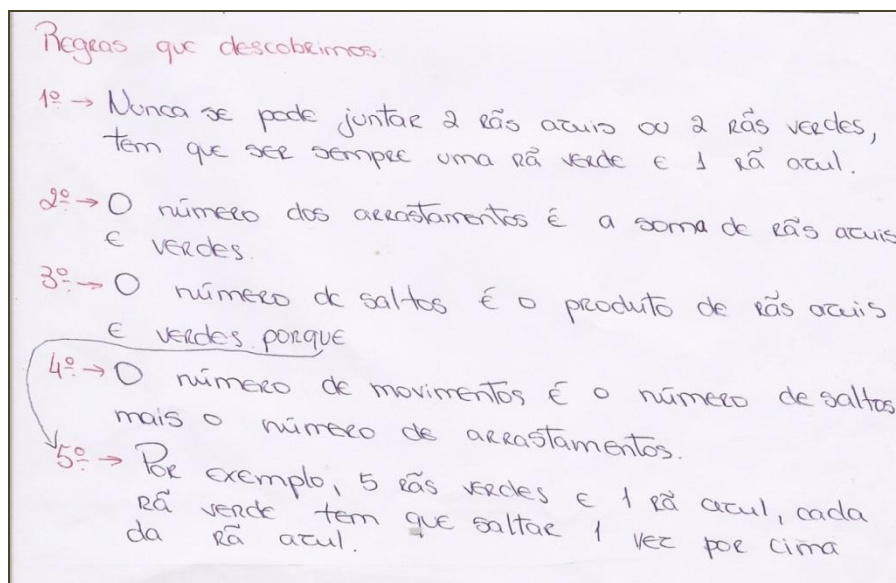 Regras que descobrimos:
1º → Nunca se pode juntar 2 rãs azuis ou 2 rãs verdes,
tem que ser sempre uma rã verde e 1 rã azul.
2º → O número dos arrastamentos é a soma de rãs azuis
e verdes.
3º → O número de saltos é o produto de rãs azuis
e verdes porque
4º → O número de movimentos é o número de saltos
mais o número de arrastamentos.
5º → Por exemplo, 5 rãs verdes e 1 rã azul, cada
rã verde tem que saltar 1 vez por cima
da rã azul.